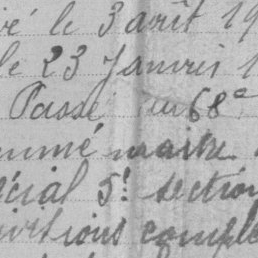 vé le 3 août 19
le 23 Janvis 1
Passé au 68e
mmé maitre
écial 5e section
ivitions comple